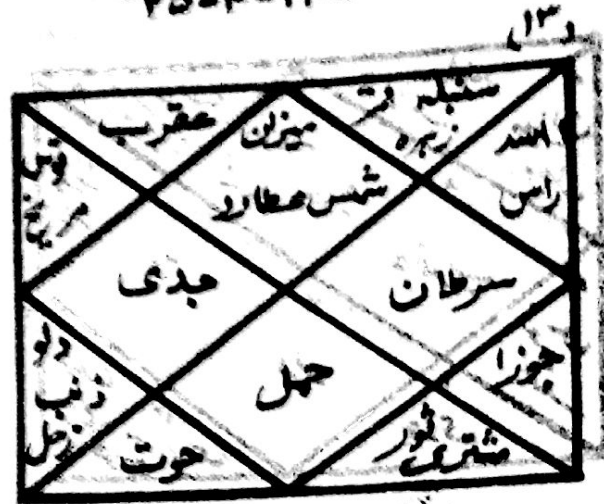 (۱۳)
سنبلہ
زہرہ
اسد
راس
میزان
شمس عطارد
عقرب
قوس
مریخ
سرطان
جدی
حمل
جوزا
مشتری ثور
حوت
دلو
ذنب
زحل